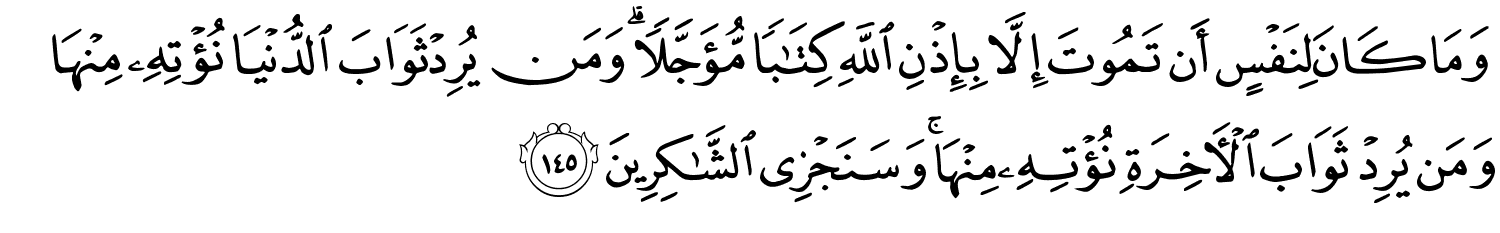 وَمَا كَانَ لِنَفْسٍ أَن تَمُوتَ إِلَّا بِإِذْنِ ٱللَّهِ كِتَـٰبًا مُّؤَجَّلًا ۗ وَمَن يُرِدْ ثَوَابَ ٱلدُّنْيَا نُؤْتِهِۦ مِنْهَا
وَمَن يُرِدْ ثَوَابَ ٱلْـَٔاخِرَةِ نُؤْتِهِۦ مِنْهَا ۚ وَسَنَجْزِى ٱلشَّـٰكِرِينَ ١٤٥